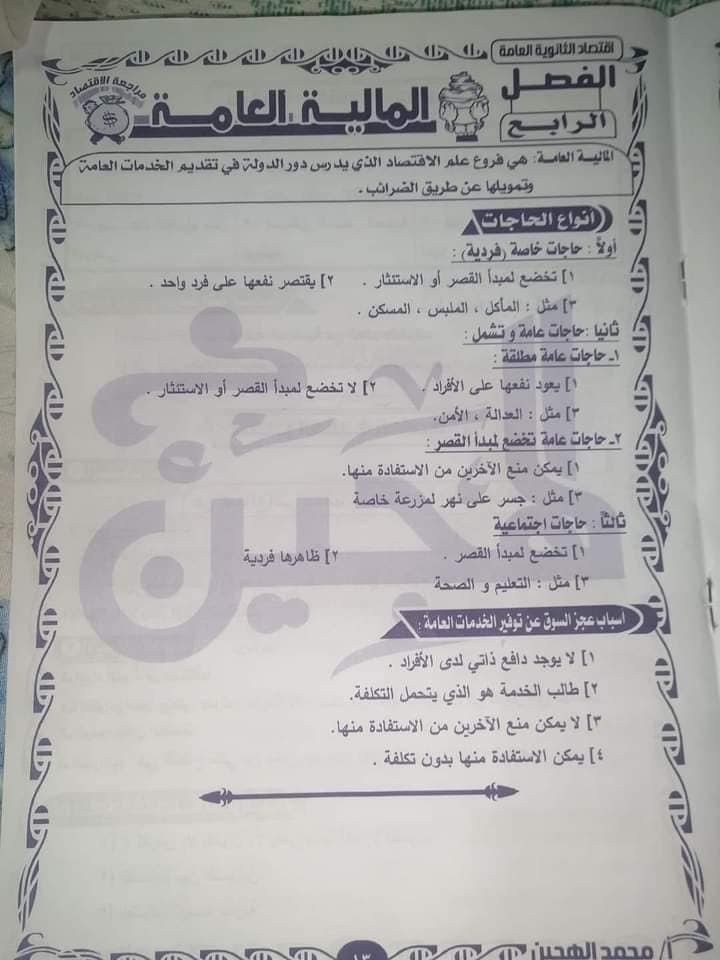 اقتصاد الثانوية العامة
الفصل الرابع
المالية العامة
مراجعة الاقتصاد
المالية العامة: هي فروع علم الاقتصاد الذي يدرس دور الدولة في تقديم الخدمات العامة
وتمويلها عن طريق الضرائب .
أنواع الحاجات
أولاً : حاجات خاصة (فردية) :
١] تخضع لمبدأ القصر أو الاستئثار . ٢] يقتصر نفعها على فرد واحد .
٣] مثل : المأكل ، الملبس ، المسكن .
ثانيا :حاجات عامة و تشمل :
١ـ حاجات عامة مطلقة :
١] يعود نفعها على الأفراد . ٢] لا تخضع لمبدأ القصر أو الاستئثار .
٣] مثل : العدالة ، الأمن.
٢ـ حاجات عامة تخضع لمبدأ القصر :
١] يمكن منع الآخرين من الاستفادة منها.
٣] مثل : جسر على نهر لمزرعة خاصة
ثالثاً : حاجات اجتماعية
١] تخضع لمبدأ القصر . ٢] ظاهرها فردية
٣] مثل : التعليم و الصحة
أسباب عجز السوق عن توفير الخدمات العامة :
١] لا يوجد دافع ذاتي لدى الأفراد .
٢] طالب الخدمة هو الذي يتحمل التكلفة.
٣] لا يمكن منع الآخرين من الاستفادة منها.
٤] يمكن الاستفادة منها بدون تكلفة .
محمد الهجين
١٣